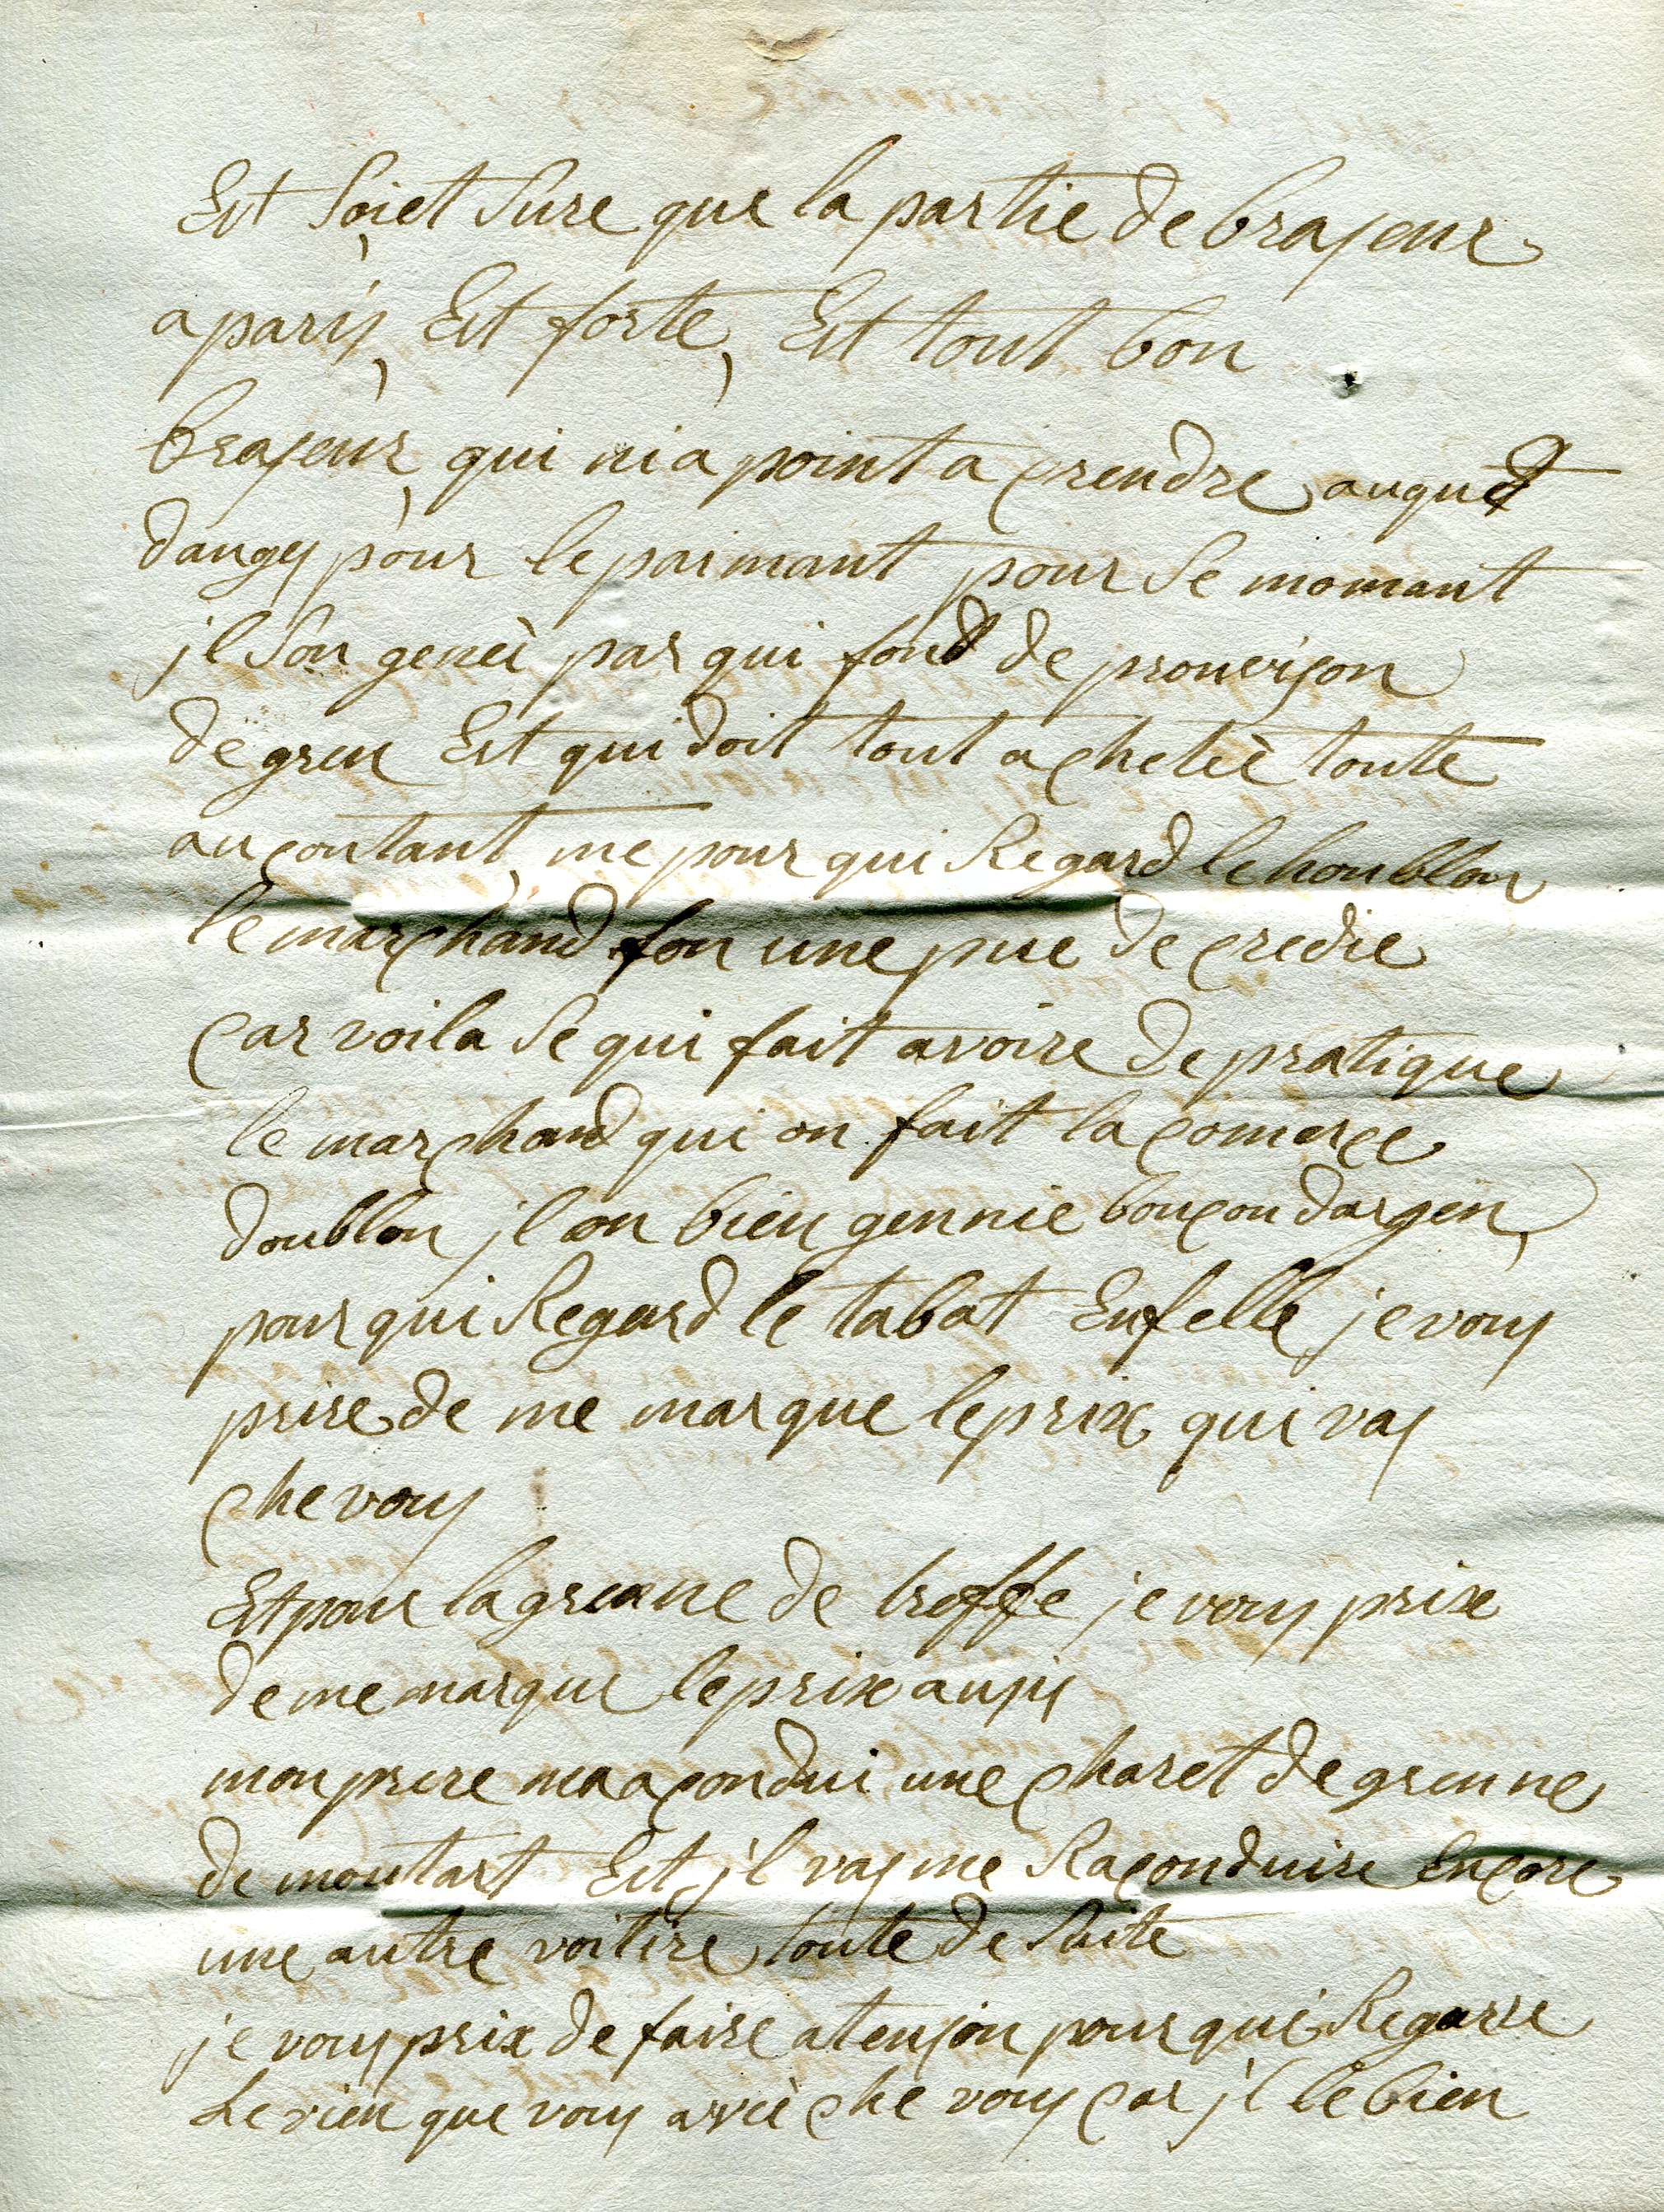 Est Soiet Sure que la partie de braseur
a paris, Est forte, Est tout bon
braseur, qui nia point a crendre auqut
dangé pour le paimant pour Se momant
jl Son geneè par qui fond de prouvison
de gren Est qui doit tout achetèe toute
au contant, me pour qui Regard le houblon
le marchand fon une pue de credie
car voila Se qui fait avoire de pratique
le marchand qui on fait la comerce
doublon jl on bien gennie boucou dargen,
pour qui Regard le tabat En felle je vous
prire de me marque le prix qui vas
che vous
Est pour la grenne de treffle je vous prix
de me marque le prix ausis
mon prere ma a condui une charet de grenne
de moutart Est jl vas me Raconduire Encore
une autre voitire toute de Suite
je vous prix de faire atension pour qui Regarre
Le vien que vous avèe che vous car jl le bien